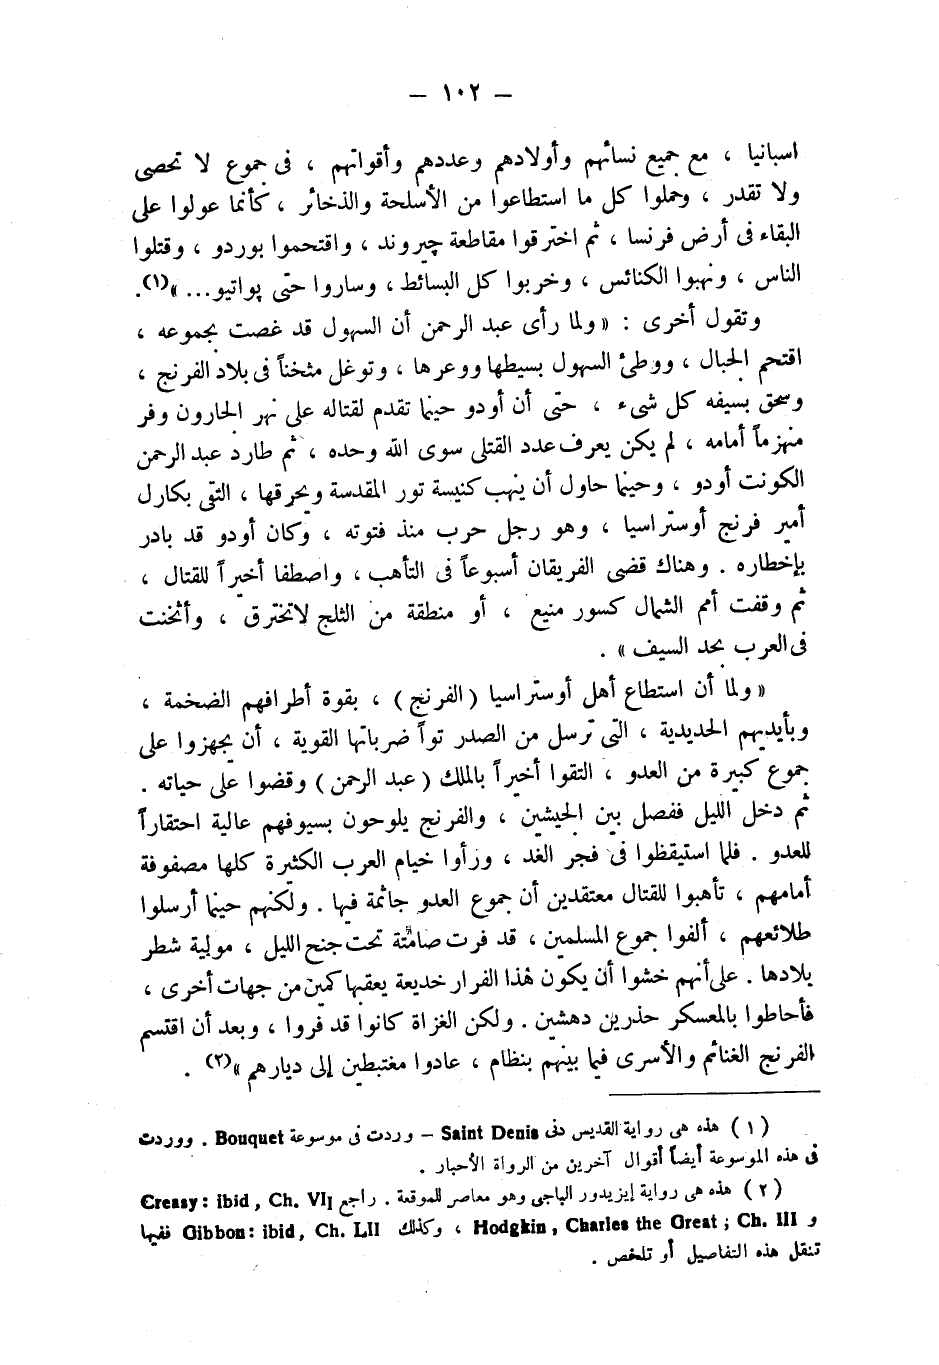 — ١٠٢ —
اسبانيا ، مع جميع نسائهم وأولادهم وعددهم وأقواتهم ، فى جموع لا تحصى
ولا تقدر ، وحملوا كل ما استطاعوا من الأسلحة والذخائر ، كأنما عولوا على
البقاء فى أرض فرنسا ، ثم اخترقوا مقاطعة چيروند ، واقتحموا بوردو ، وقتلوا
الناس ، ونهبوا الكنائس ، وخربوا كل البسائط ، وساروا حتى پواتيو... »(١).
وتقول أخرى : « ولما رأى عبد الرحمن أن السهول قد غصت بجموعه ،
اقتحم الجبال ، ووطئ السهول بسيطها ووعرها ، وتوغل مثخناً فى بلاد الفرنج ،
وسحق بسيفه كل شىء ، حتى أن أودو حينما تقدم لقتاله على نهر الجارون وفر
منهزماً أمامه ، لم يكن يعرف عدد القتلى سوى الله وحده ، ثم طارد عبد الرحمن
الكونت أودو ، وحينما حاول أن ينهب كنيسة تور المقدسة ويحرقها ، التقى بكارل
أمير فرنج أوستراسيا ، وهو رجل حرب منذ فتوته ، وكان أودو قد بادر
بإخطاره . وهناك قضى الفريقان أسبوعاً فى التأهب ، واصطفا أخيراً للقتال ،
ثم وقفت أمم الشمال كسور منيع ، أو منطقة من الثلج لاتخترق ، وأثخنت
فى العرب بحد السيف » .
« ولما أن استطاع أهل أوستراسيا ( الفرنج ) ، بقوة أطرافهم الضخمة ،
وبأيديهم الحديدية ، التى ترسل من الصدر تواً ضرباتها القوية ، أن يجهزوا على
جموع كبيرة من العدو ، التقوا أخيراً بالملك ( عبد الرحمن ) وقضوا على حياته .
ثم دخل الليل ففصل بين الجيشين ، والفرنج يلوحون بسيوفهم عالية احتقاراً
للعدو . فلما استيقظوا فى فجر الغد ، ورأوا خيام العرب الكثيرة كلها مصفوفة
أمامهم ، تأهبوا للقتال معتقدين أن جموع العدو جاثمة فيها . ولكنهم حينما أرسلوا
طلائعهم ، ألفوا جموع المسلمين ، قد فرت صامتة تحت جنح الليل ، مولية شطر
بلادها . على أنهم خشوا أن يكون هذا الفرار خديعة يعقبها كمين من جهات أخرى ،
فأحاطوا بالمعسكر حذرين دهشين . ولكن الغزاة كانوا قد فروا ، وبعد أن اقتسم
الفرنج الغنائم والأسرى فيما بينهم بنظام ، عادوا مغتبطين إلى ديارهم »(٢) .
( ١ ) هذه هى رواية القديس دنى Saint Denis – وردت فى موسوعة Bouquet . ووردت
فى هذه الموسوعة أيضاً أقوال آخرين من الرواة الأحبار .
( ٢ ) هذه هى رواية إيزيدور الباجى وهو معاصر للموقعة . راجع Creasy : ibid , Ch. VII
و Hodgkin , Charles the Great ; Ch. III ، وكذلك Gibbon : ibid , Ch. LII ففيها
تنقل هذه التفاصيل أو تلخص .